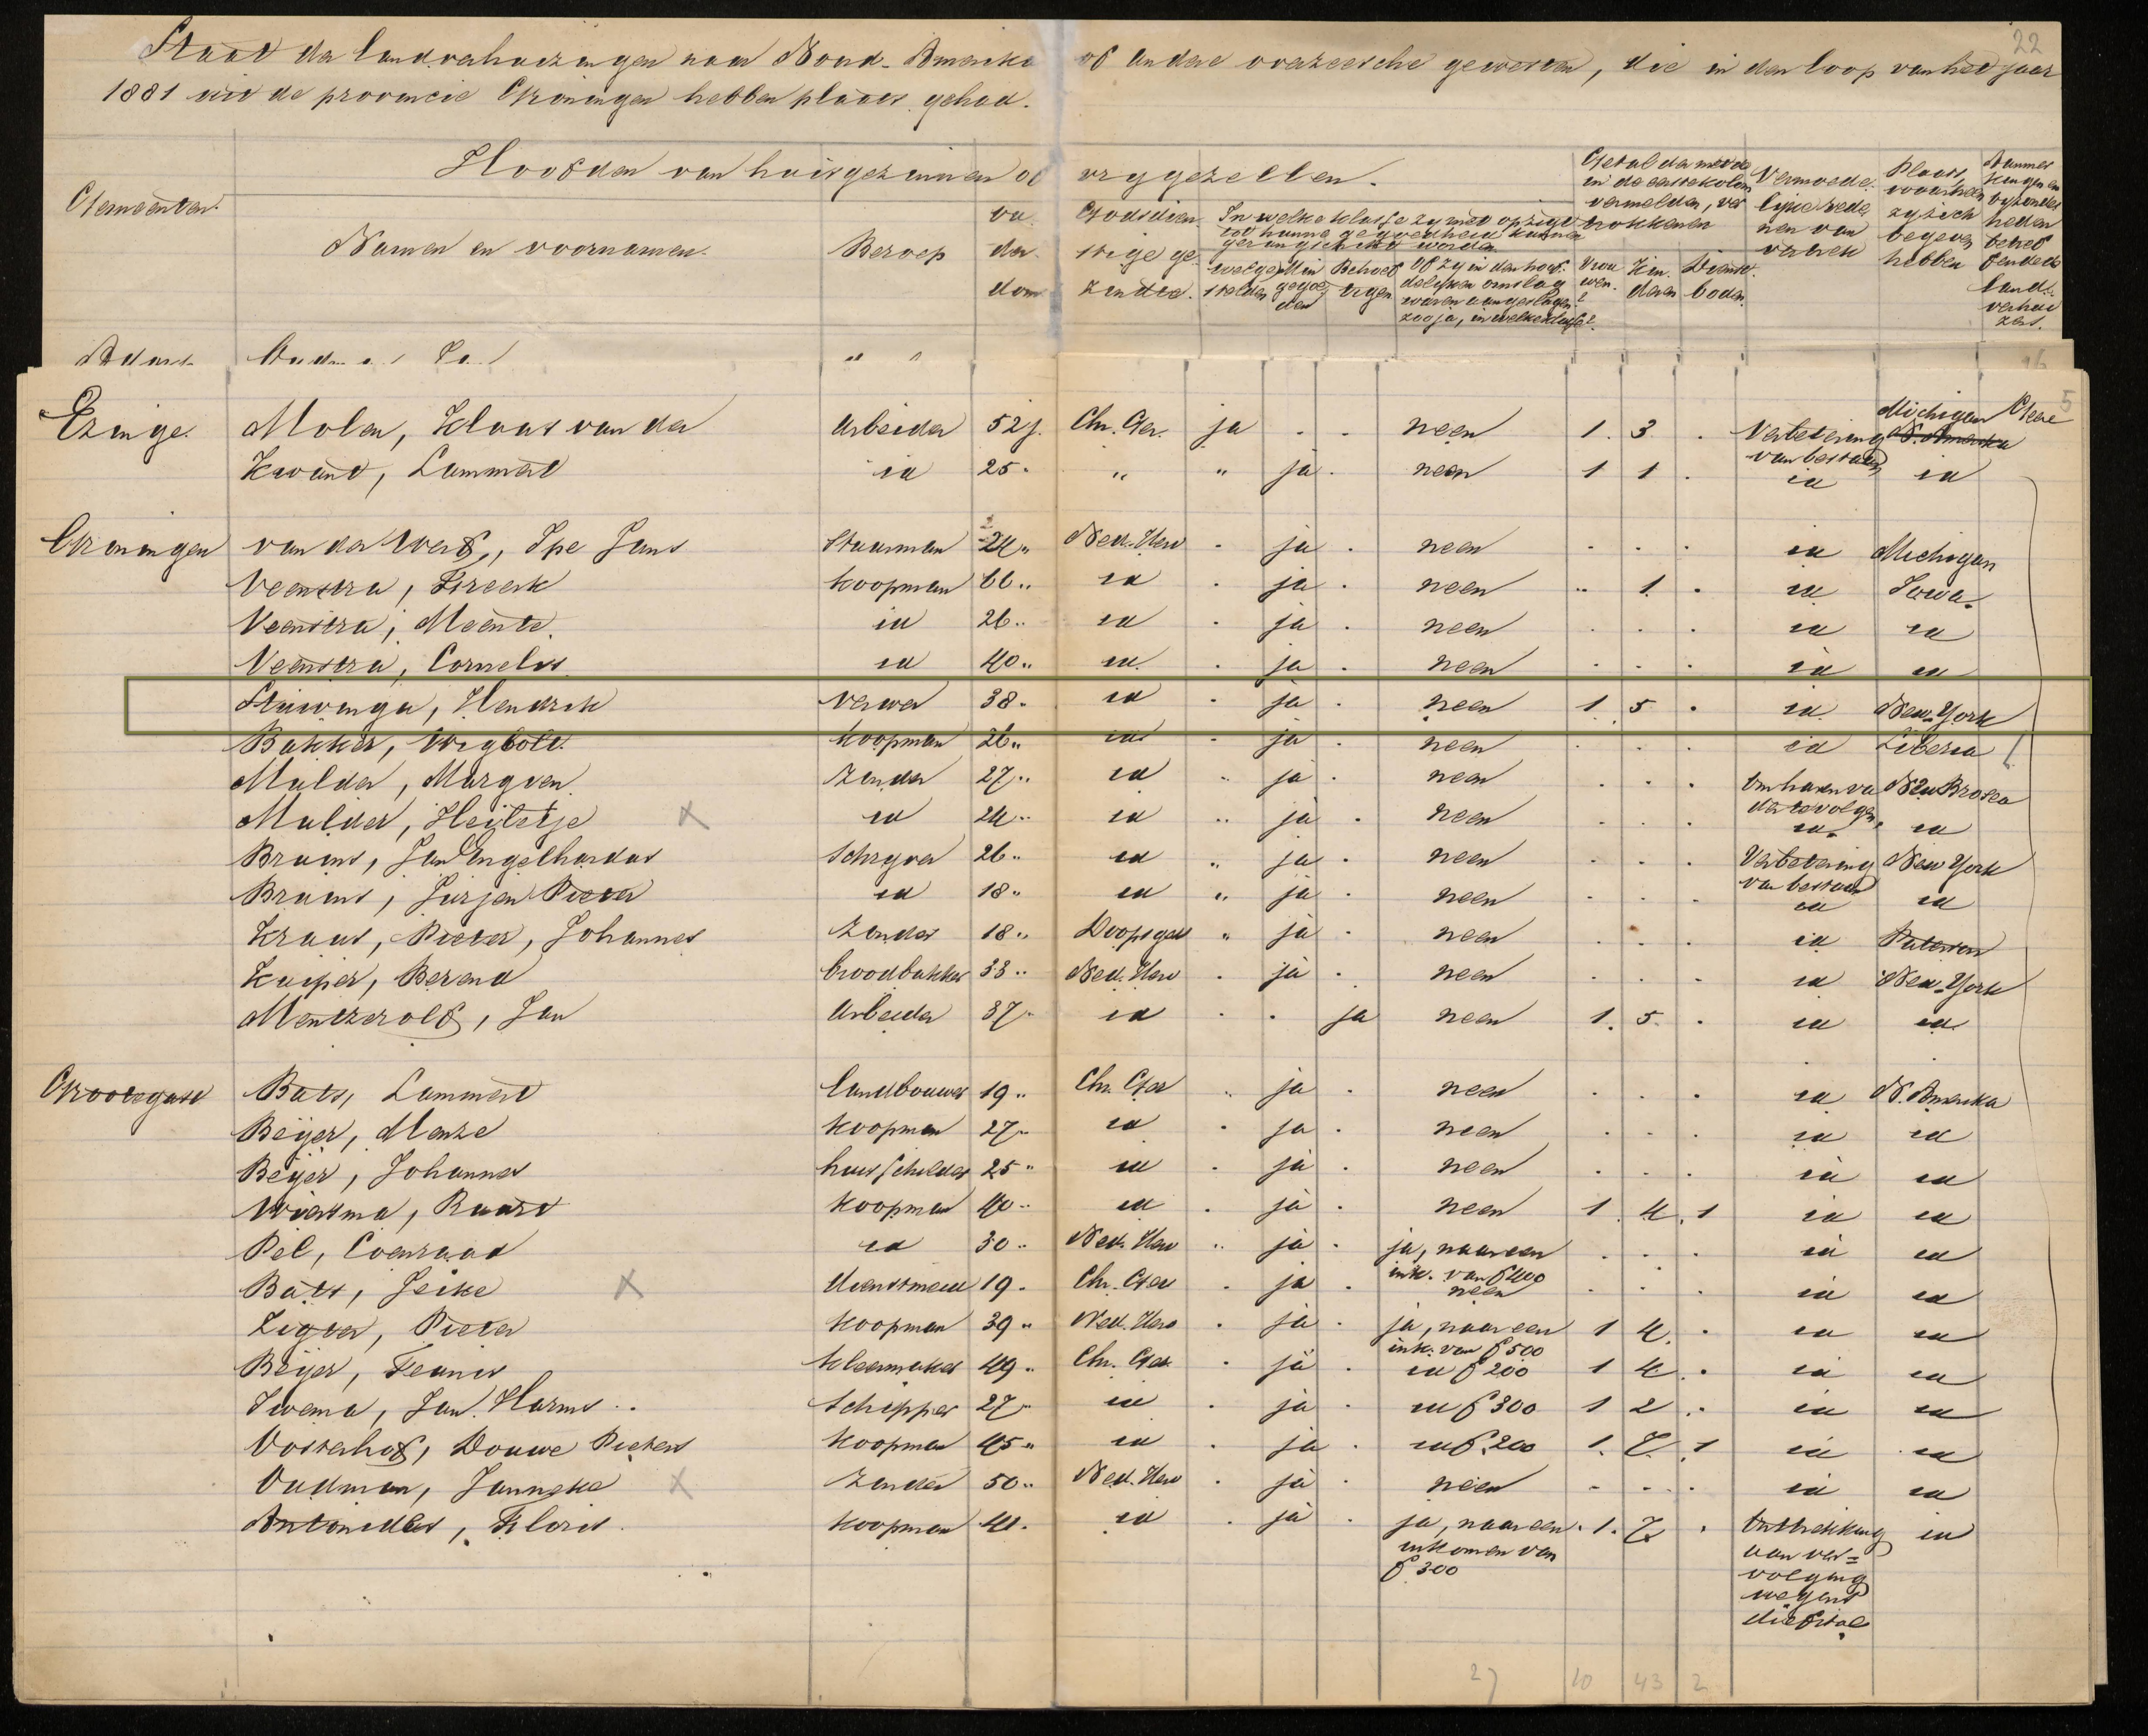 22
Staat der landverhuizingen naar Noord-Amerika of andere overzeesche gewesten, die in den loop van het jaar
1881 uit de provincie Groningen hebben plaats gehad.
Hoofden van huisgezinnen of vrygezellen.
Gemeenten.
Namen en voornamen.
Beroep
Ou
der
dom
Godsdien
stige ge
zindte.
In welke klasse zy met opzigt
tot hunne gegoedheid kunnen
gerangschikt worden
welge
stelden
Min
gegoe
den
Behoef
tigen
Of zy in den hoof
delyken omslag
waren aangeslagen?
zoo ja, in welke klasse?
Getal der met de
in de eerste kolom
vermelden, ver
trokkenen
Vrou
wen.
Kin
deren
Dienst
boden
Vermoede
lyke rede
nen van
vertrek
Plaats
waarheen
zy zich
begeven
hebben
Aanmer
kingen en
byzonder
heden
betref
fende de
land-
verhui
zers.
5
Ezinge. Molen, Klaas van der Arbeider 52 j. Chr. Ger. ja . . neen 1. 3 . Verbetering van bestaan Michigan N. Amerika Geene
Kwant, Lammert id 25 " " ja . neen 1 1 . id id
Groningen van der Werf, Ipe Jans Stuurman 24 " Ned. Herv . ja . neen . . . id Michigan
Veenstra, Freerk koopman 66 " id . ja . neen " 1 . id Iowa
Veenstra, Meente id 26 " id . ja . neen . . . id id
Veenstra, Cornelis id 40 " id . ja . neen . . . id id
Stuivinga, Hendrik verwer 38 " id . ja . neen 1 5 . id New-York
Bakker, Wigbold koopman 26 " id . ja . neen . . . id Liberia
Mulder, Margien Zonder 27 " id " ja . neen . . . Om haren va der te volgen
Mulder, Heiltetje x id 24 " id " ja . neen . . . id id
Bruins, Jan Engelhardus Schryver 26 " id " ja . neen . . . Verbetering van bestaan New York
Bruins, Jurjen Pieter id 18 " id " ja . neen . . . id id
Kraus, Pieter, Johannes Zonder 18 " Doopsgez " ja . neen . . . id Paterson
Kuiper, Berend broodbakker 33 " Ned. Herv . ja . neen . . . id New-York
Mentzerolf, Jan Arbeider 37 " id . . ja neen 1. 5. . id id
Grootegast Bats, Lammert landbouwer 19 " Chr. Ger " ja . neen . . . id N. Amerika
Beijer, Menze koopman 27 " id . ja . neen . . . id id
Beijer, Johannes huisschilder 25 " id . ja . neen . . . id id
Wiersma, Ruurt koopman 40 " id . ja . neen 1 4 1 id id
Pel, Coenraad id 30 " Ned. Herv " ja . ja, naar een ink. van f 400 . . . id id
Bats, Jeike x dienstmeid 19 . Chr. Ger . ja . neen . . . id id
Zigter, Pieter koopman 39 " Ned. Herv . ja . ja, naar een ink. van f 500 1 4 . id id
Beijer, Teunis kleermaker 49 " Chr. Ger . ja . id f 200 1 4 . id id
Iwema, Jan Harms Schipper 27 " id . ja . id f 300 1 2 . id id
Oosterhof, Douwe Pieters koopman 45 " id . ja . id f 200 1. 7. 1 id id
Oudman, Janneke x Zonder 50 " Ned. Herv . ja . neen . . . id id
Antonides, Floris koopman 41. id . ja . ja, naar een inkomen van f 300 1. 7. . Onttrekking aan ver= volging wegens diefstal id
27 10 43 2